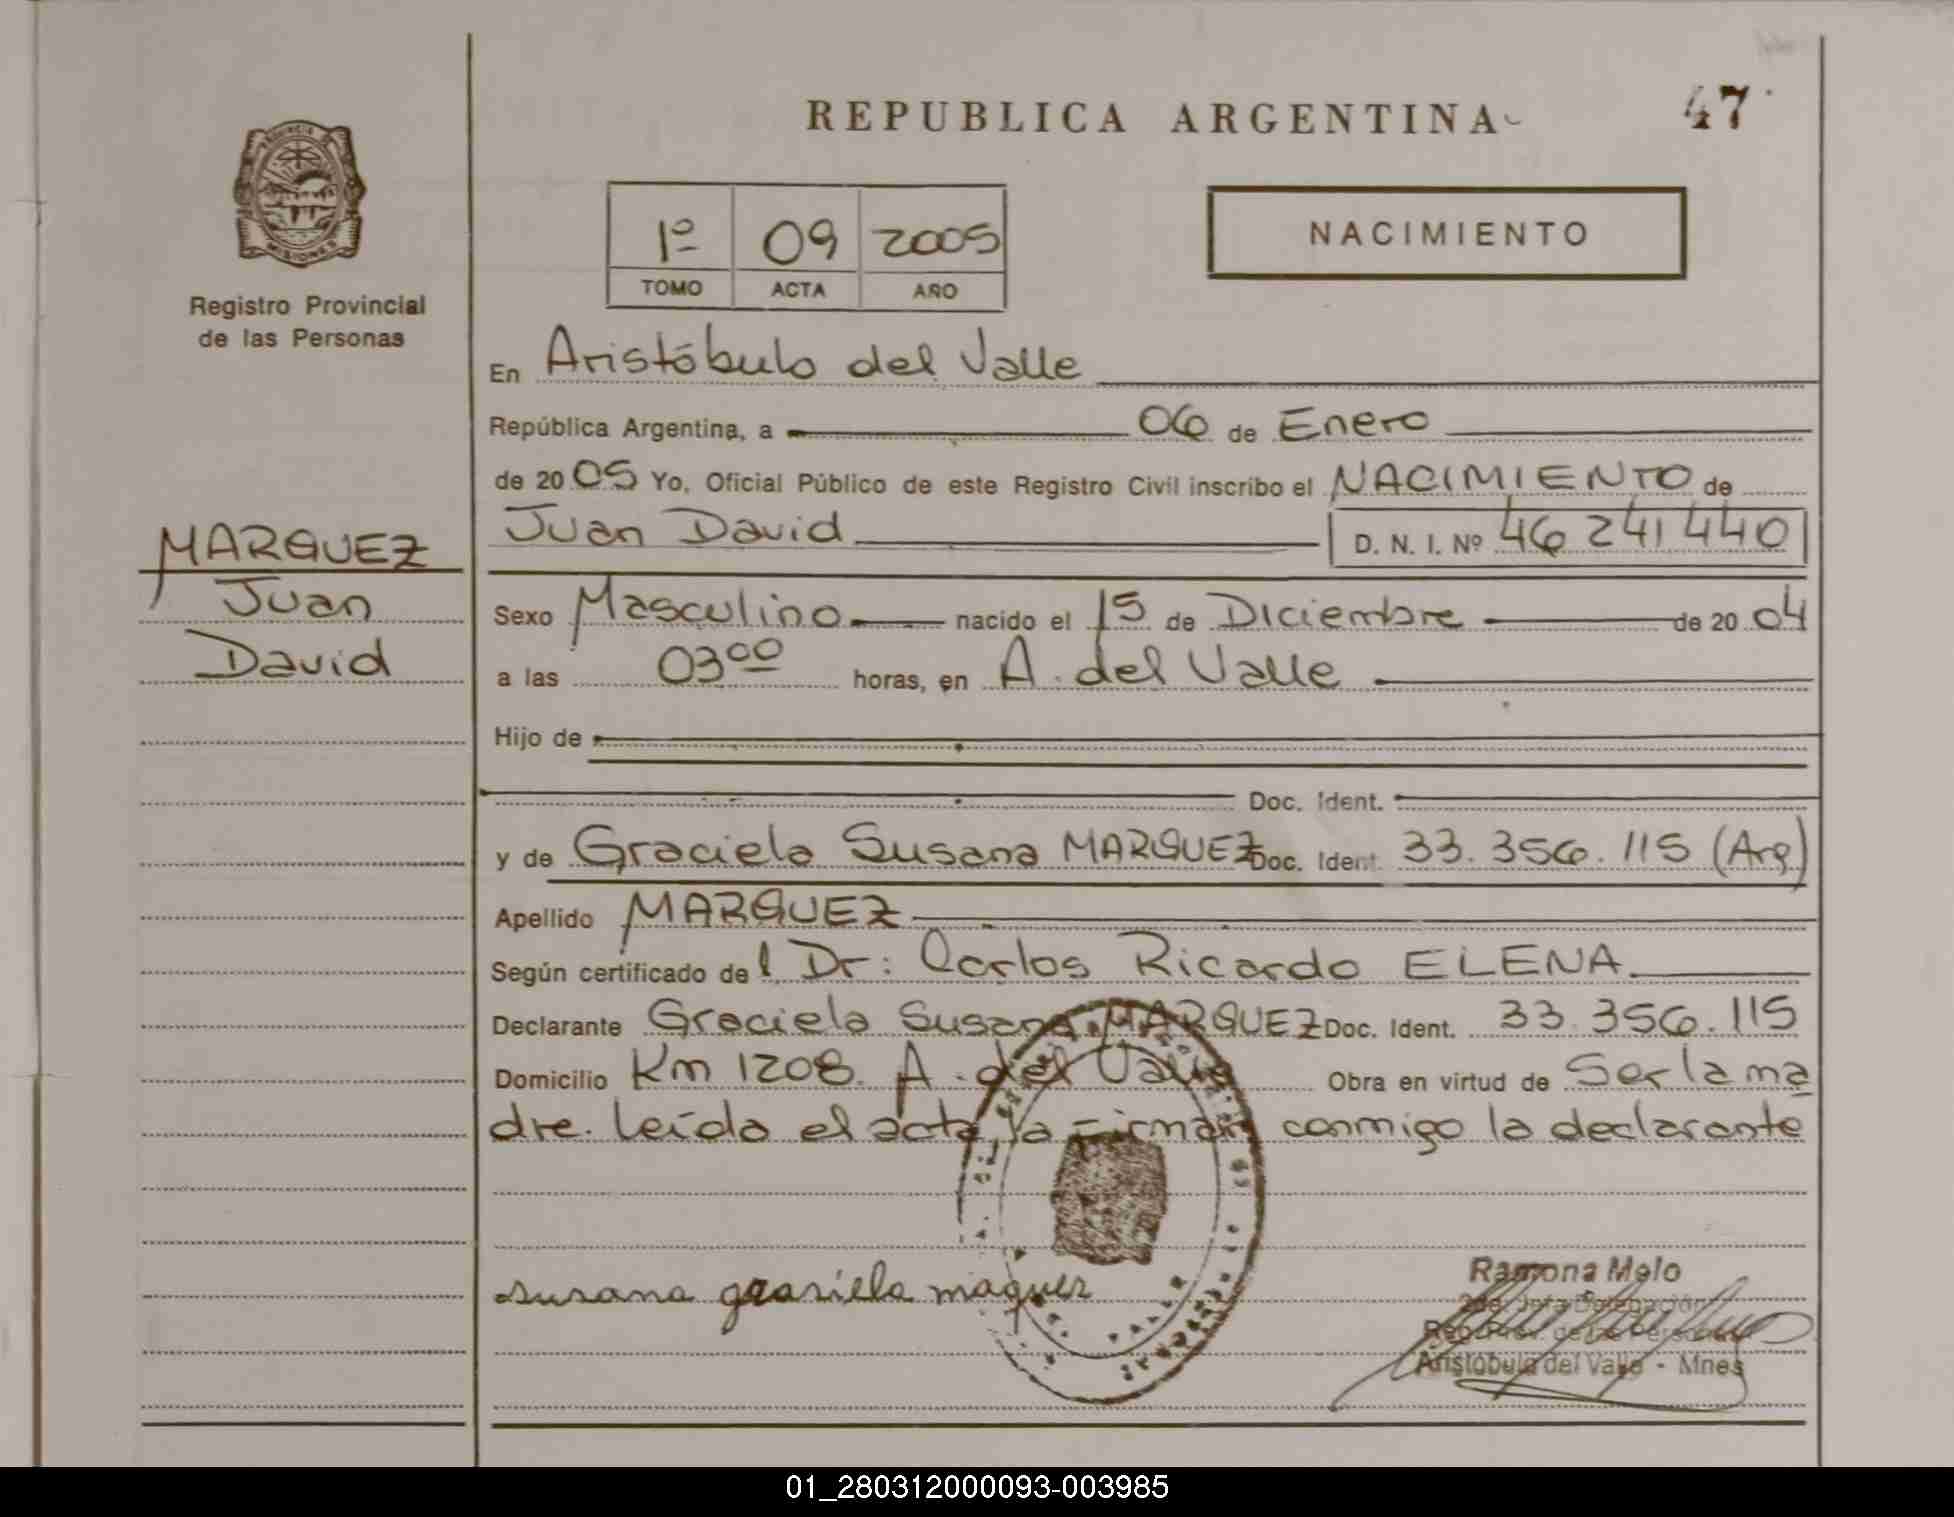 REPUBLICA ARGENTINA
47
PROVINCIA
MISIONES
Registro Provincial
de las Personas
1º 09 2005
TOMO ACTA AÑO
NACIMIENTO
En Aristóbulo del Valle
República Argentina, a 06 de Enero
de 2005 Yo, Oficial Público de este Registro Civil inscribo el NACIMIENTO de
Juan David D. N. I. Nº 46 241 440
MARQUEZ
Juan
David
Sexo Masculino nacido el 15 de Diciembre de 2004
a las 03 00 horas, en A. del Valle
Hijo de
Doc. Ident.
y de Graciela Susana MARQUEZ Doc. Ident. 33.356.115 (Arg)
Apellido MARQUEZ
Según certificado del Dr: Carlos Ricardo ELENA
Declarante Graciela Susana MARQUEZ Doc. Ident. 33.356.115
Domicilio Km 1208. A. del Valle Obra en virtud de Ser la ma
dre. leída el acta, la Firman conmigo la declarante
susana grasiela maquez
Ramona Melo
2da. Jefa Delegación
Reg. Prov. de las Personas
Aristóbulo del Valle - Mnes
01_280312000093-003985